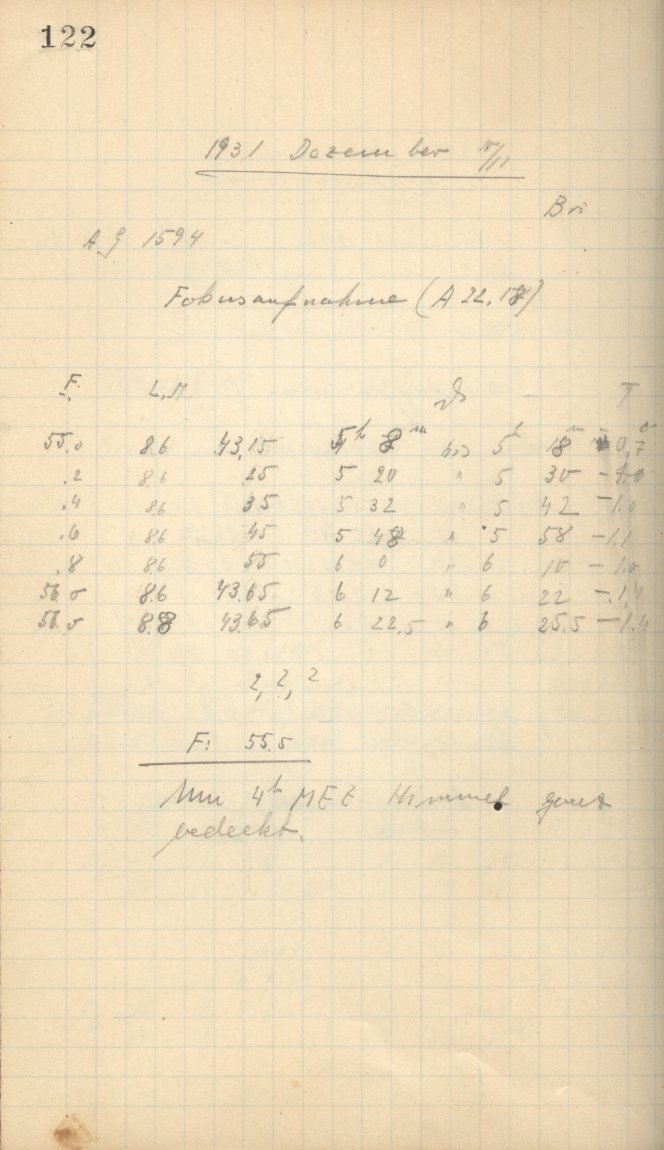 122
1931 Dezember
Bri
AG 1594
Fokusaufnahme (A 22, 18)
F. L, M. T
55.0 8.6 43,15 5h 8m bis 5h 18m 0,7
.2 8.6 25 5 20 " 5 30 -1.0
.4 8.6 35 5 32 " 5 42 -1.0
.6 8.6 45 5 48 " 5 58 -1.1
.8 8.6 55 6 0 " 6 10 -1.0
56.0 8.6 43.65 6 12 " 6 22 -1.4
56.0 8.8 43.65 6 22.5 " 6 25.5 -1.4
2, 2, 2
F: 55.5
Um 4h MEZ Himmel ganz
bedeckt.